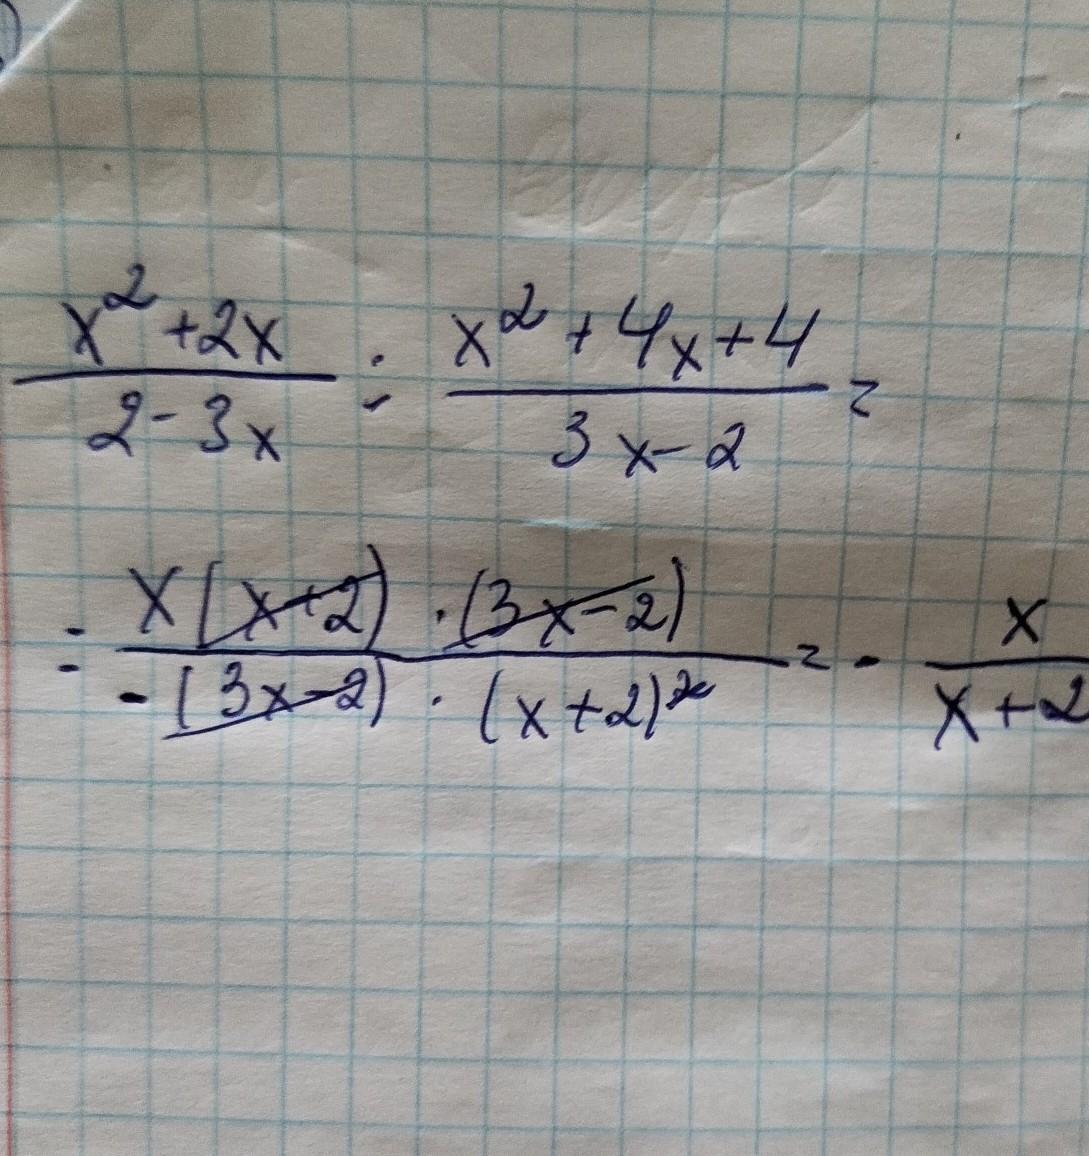 (x²+2x)/(2-3x) : (x²+4x+4)/(3x-2) =
= (x(x+2)·(3x-2))/(-(3x-2)·(x+2)²) = - x/(x+2)